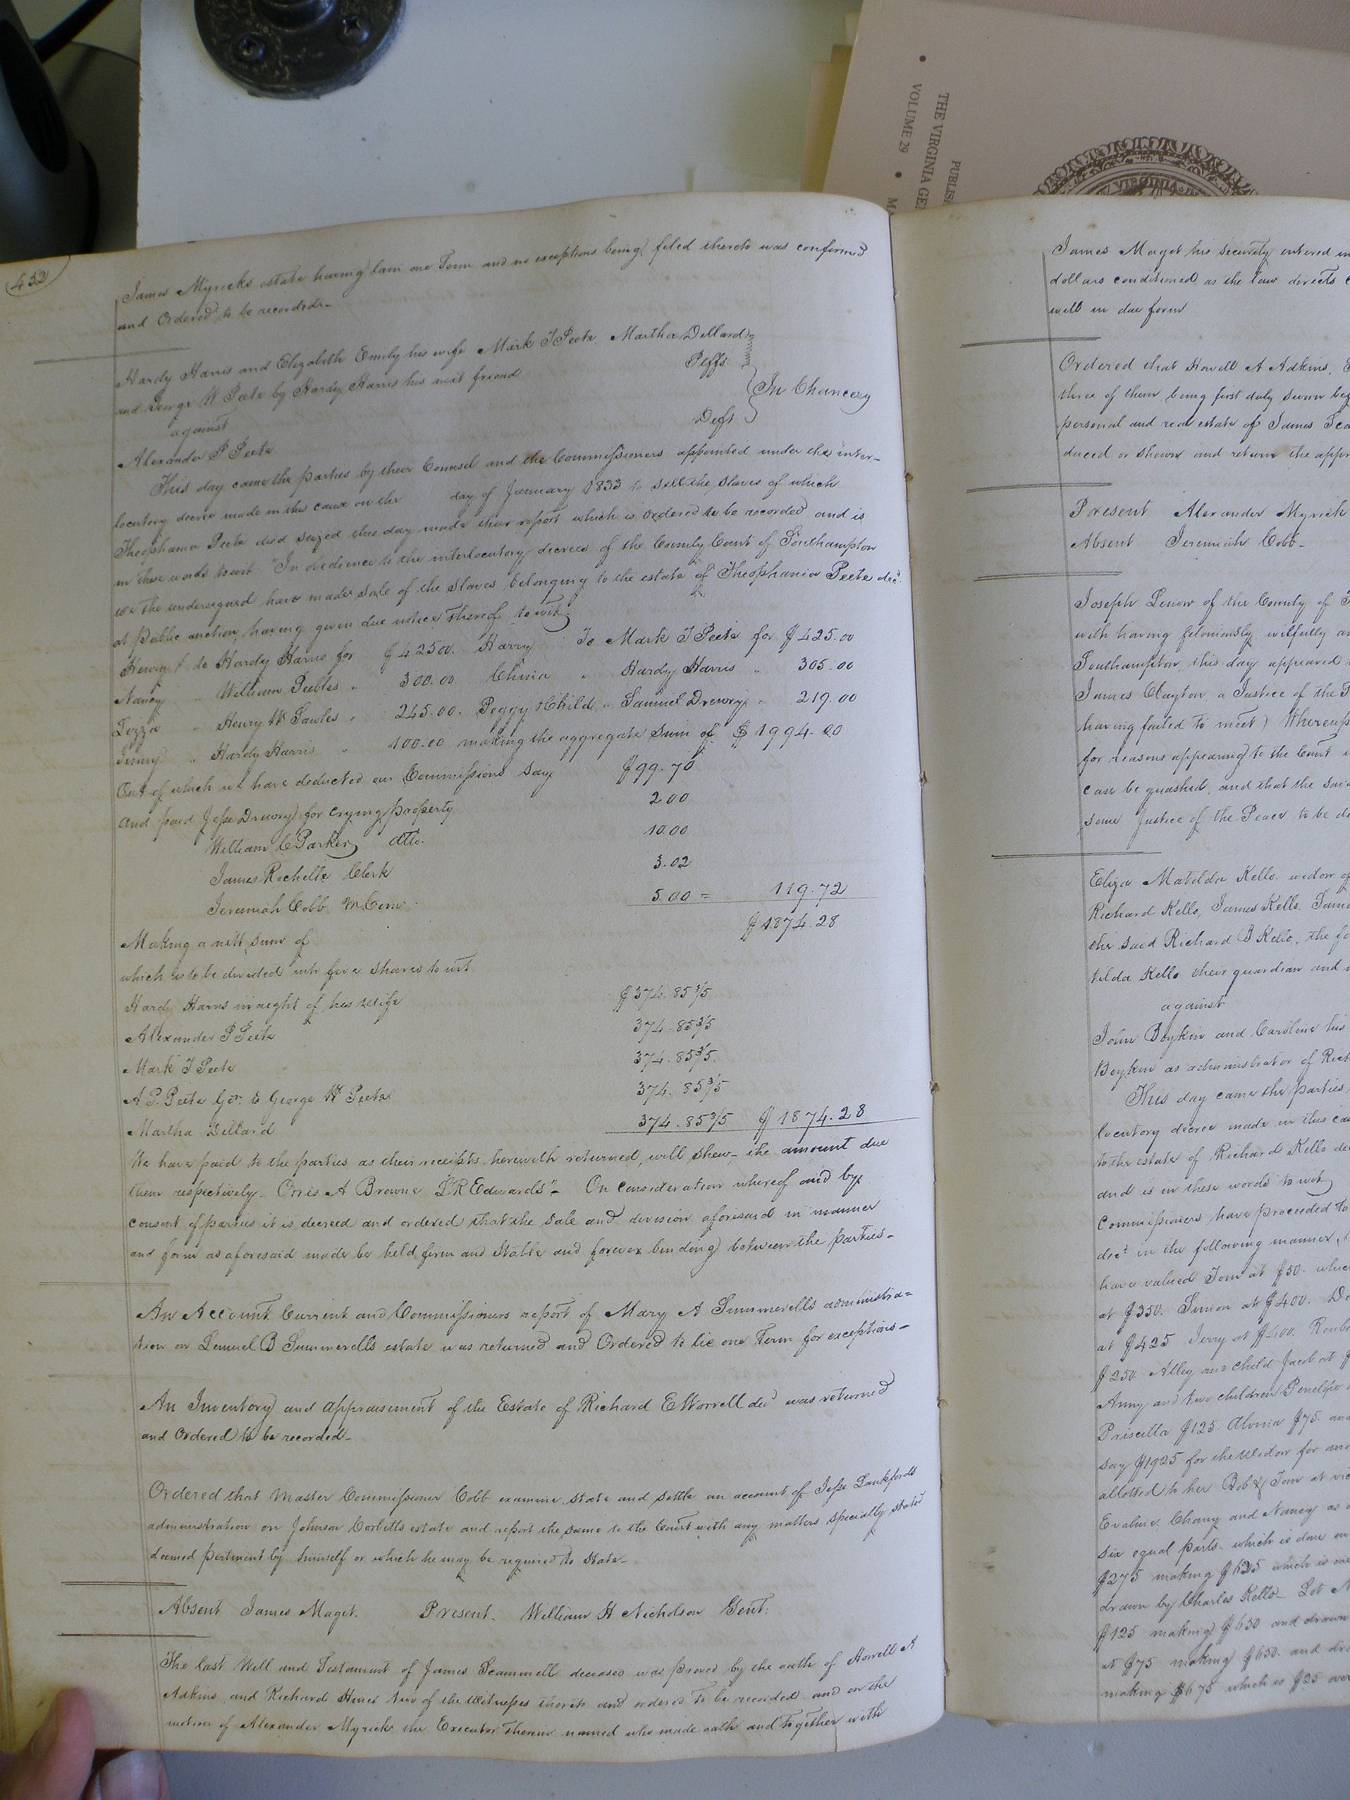 THE VIRGINIA GE
VOLUME 29
PUBLIS
VIRGINIA
432
James Myricks estate having lain one Term and no exceptions being filed thereto was confirmed
and Ordered to be recorded.
Hardy Harris and Elizabeth Emily his wife Mark T Peete Martha Dellard
and George W Peete by Hardy Harris his next friend Plffs
against In Chancery
Alexander P Peete Deft
This day came the parties by their Counsel and the Commissioners appointed under the inter-
locutory decree made in this cause on the day of January 1833 to sell the slaves of which
Theophania Peete died seized this day made their report which is ordered to be recorded and is
in these words to wit "In obedience to the interlocutory decree of the County Court of Southampton
we the undersigned have made sale of the slaves belonging to the estate of Theophania Peete decd.
at public auction, having given due notice thereof to wit
Henry to Hardy Harris for $425.00. Harry To Mark T Peete for $425.00
Nancy " William Peebles " 300.00 " Hardy Harris " 305.00
" Henry W Sawles " 245.00. Peggy & Child " Samuel Drewry " 219.00
Jenny " Hardy Harris " 100.00 making the aggregate sum of $1994.00
Out of which we have deducted our Commissions say $99.70
And paid Jesse Drewry for crying property 2.00
William C Parker atto. 10.00
James Rochelle Clerk 3.02
Jeremiah Cobb 5.00 = 119.72
Making a nett sum of $1874.28
which is to be divided into five shares to wit
Hardy Harris in right of his wife $374.85 3/5
Alexander P Peete 374.85 3/5
Mark T Peete 374.85 3/5
A P. Peete Gdn. to George W Peete 374.85 3/5
Martha Dellard 374.85 3/5 $1874.28
We have paid to the parties as their receipts herewith returned, will shew the amount due
them respectively. Ones A Browne L R Edwards" On consideration whereof and by
consent of parties it is decreed and ordered that the sale and division aforesaid in manner
and form as aforesaid made be held firm and stable and forever binding between the parties-
An Account Current and Commissioners report of Mary A Summerells administra-
tion on Lemuel B Summerells estate was returned and Ordered to lie one Term for exceptions-
An Inventory and appraisement of the Estate of Richard E Worrell decd was returned
and Ordered to be recorded-
Ordered that Master Commissioner Cobb examine state and settle an account of Jesse Lankfords
administration on Johnson Corbitts estate and report the same to the Court with any matters specially stated
deemed pertinent by himself or which he may be required to state-
Absent James Maget. Present- William H Nicholson Gent.
The last Will and Testament of James Scammell deceased was proved by the oath of Howell A
Adkins and Richard Hines two of the witnesses thereto and ordered to be recorded and on the
motion of Alexander Myrick the Executor therein named who made oath and together with
James Maget his security entered in
dollars conditioned as the law directs
will in due form
Ordered that Howell A Adkins,
three of them being first duly sworn
personal and real estate of James
duced or shewn and return the
Present Alexander Myrick
Absent Jeremiah Cobb-
Joseph Lenow of the County of
with having feloniously wilfully
Southampton this day appeared
James Clayton a Justice of the
having failed to meet) Whereup
for reasons appearing to the Court
case be quashed, and that the said
some Justice of the Peace to be
Eliza Matilda Kello widow of
Richard Kello, James Kello
the said Richard B Kello, the
tilda Kello their guardian and
against
John Boykin and Caroline his
Boykin as administrator of Rich
This day came the parties
locutory decree made in this ca
to the estate of Richard Kello de
and is in these words to wit
Commissioners have proceeded to
decd in the following manner
have valued Tom at $50. whic
at $350. Simon at $400.
at $425 Jerry at $400.
$250. Alley and child Jacob at
Anny and two children Penelope
Priscilla $125. $75. and
say $1925 for the Widow for
allotted to her Bob & Tom at
Evaline. Chany and Nancy as
six equal parts. which is done
$275 making $625 which is
drawn by Charles Kello- Lot
$125 making $650 and drawn
at $75 making $650. and dr
making $675 which is $25 over